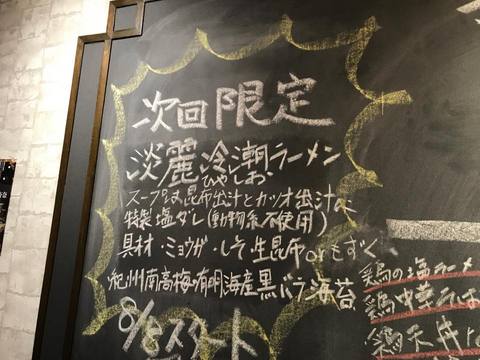 次回限定
淡麗冷潮ラーメン
ひやしお
スープは昆布出汁とカツオ出汁に
特製塩ダレ(動物系不使用)
具材・ミョウガ・しそ・生昆布orもずく、
紀州南高梅・有明海産黒バラ海苔
8/8スタート
鶏の塩ラーメ
鶏中華そば
鶏天丼